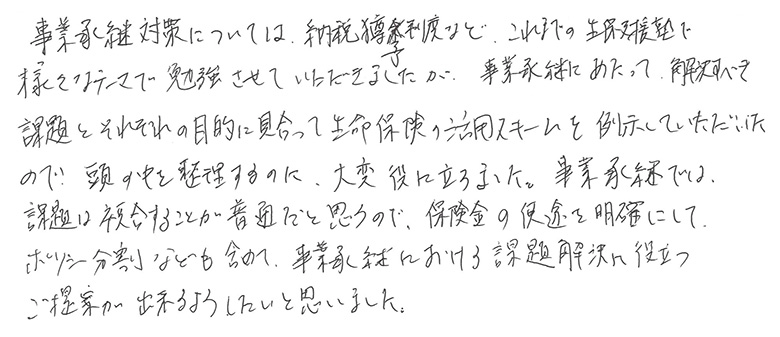 事業承継対策については、納税猶予制度など、これまでの生保支援塾で
様々なテーマで勉強させていただきましたが、事業承継にあたって、解決すべき
課題とそれぞれの目的に見合って生命保険の活用スキームを例示していただいた
ので、頭の中を整理するのに、大変役に立ちました。事業承継では、
課題は複合することが普通だと思うので、保険金の使途を明確にして、
ポリシー分割なども含めて、事業承継における課題解決に役立つ
ご提案が出来るようしたいと思いました。